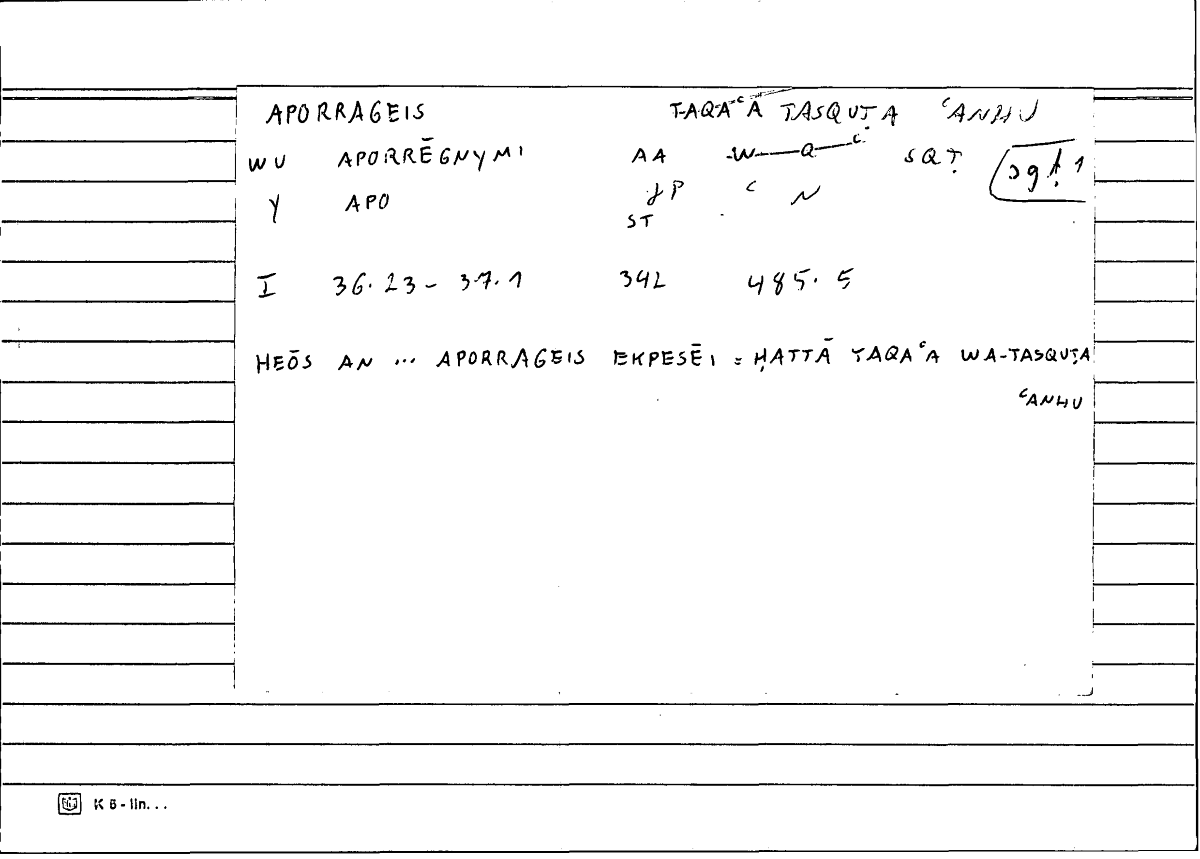 APORRAGEIS TAQAʿA TASQUṬA ʿANHU
WU APORRĒGNYMI AA W Q ʿ SQṬ sqṭ 1
Y APO P ʿ N
ST
I 36.23 - 37.1 342 485.5
HEŌS AN ... APORRAGEIS EKPESĒI = ḤATTĀ TAQAʿA WA-TASQUṬA
ʿANHU
K 6 - lin...